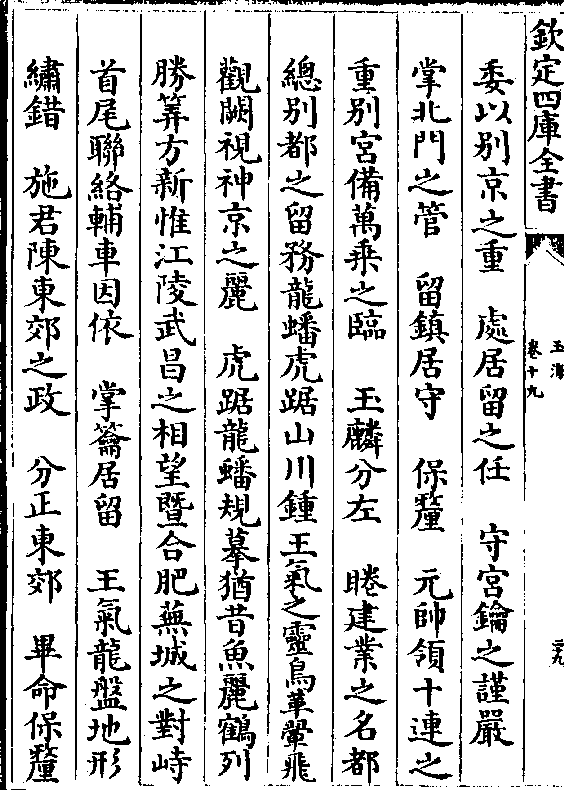 欽定四庫全書
玉海
卷十九
委以別京之重　處居留之任　守宮鑰之謹嚴
掌北門之管　留鎮居守　保釐　元帥領十連之
重別宮備萬乗之臨　玉麟分左　睠建業之名都
總別都之留務龍蟠虎踞山川鍾王氣之靈鳥革翬飛
觀闕視神京之麗　虎踞龍蟠規摹猶昔魚麗鶴列
勝筭方新惟江陵武昌之相望暨合肥蕪城之對峙
首尾聯絡輔車因依　掌籥居留　王氣龍盤地形
繡錯　施君陳東郊之政　分正東郊　畢命保釐